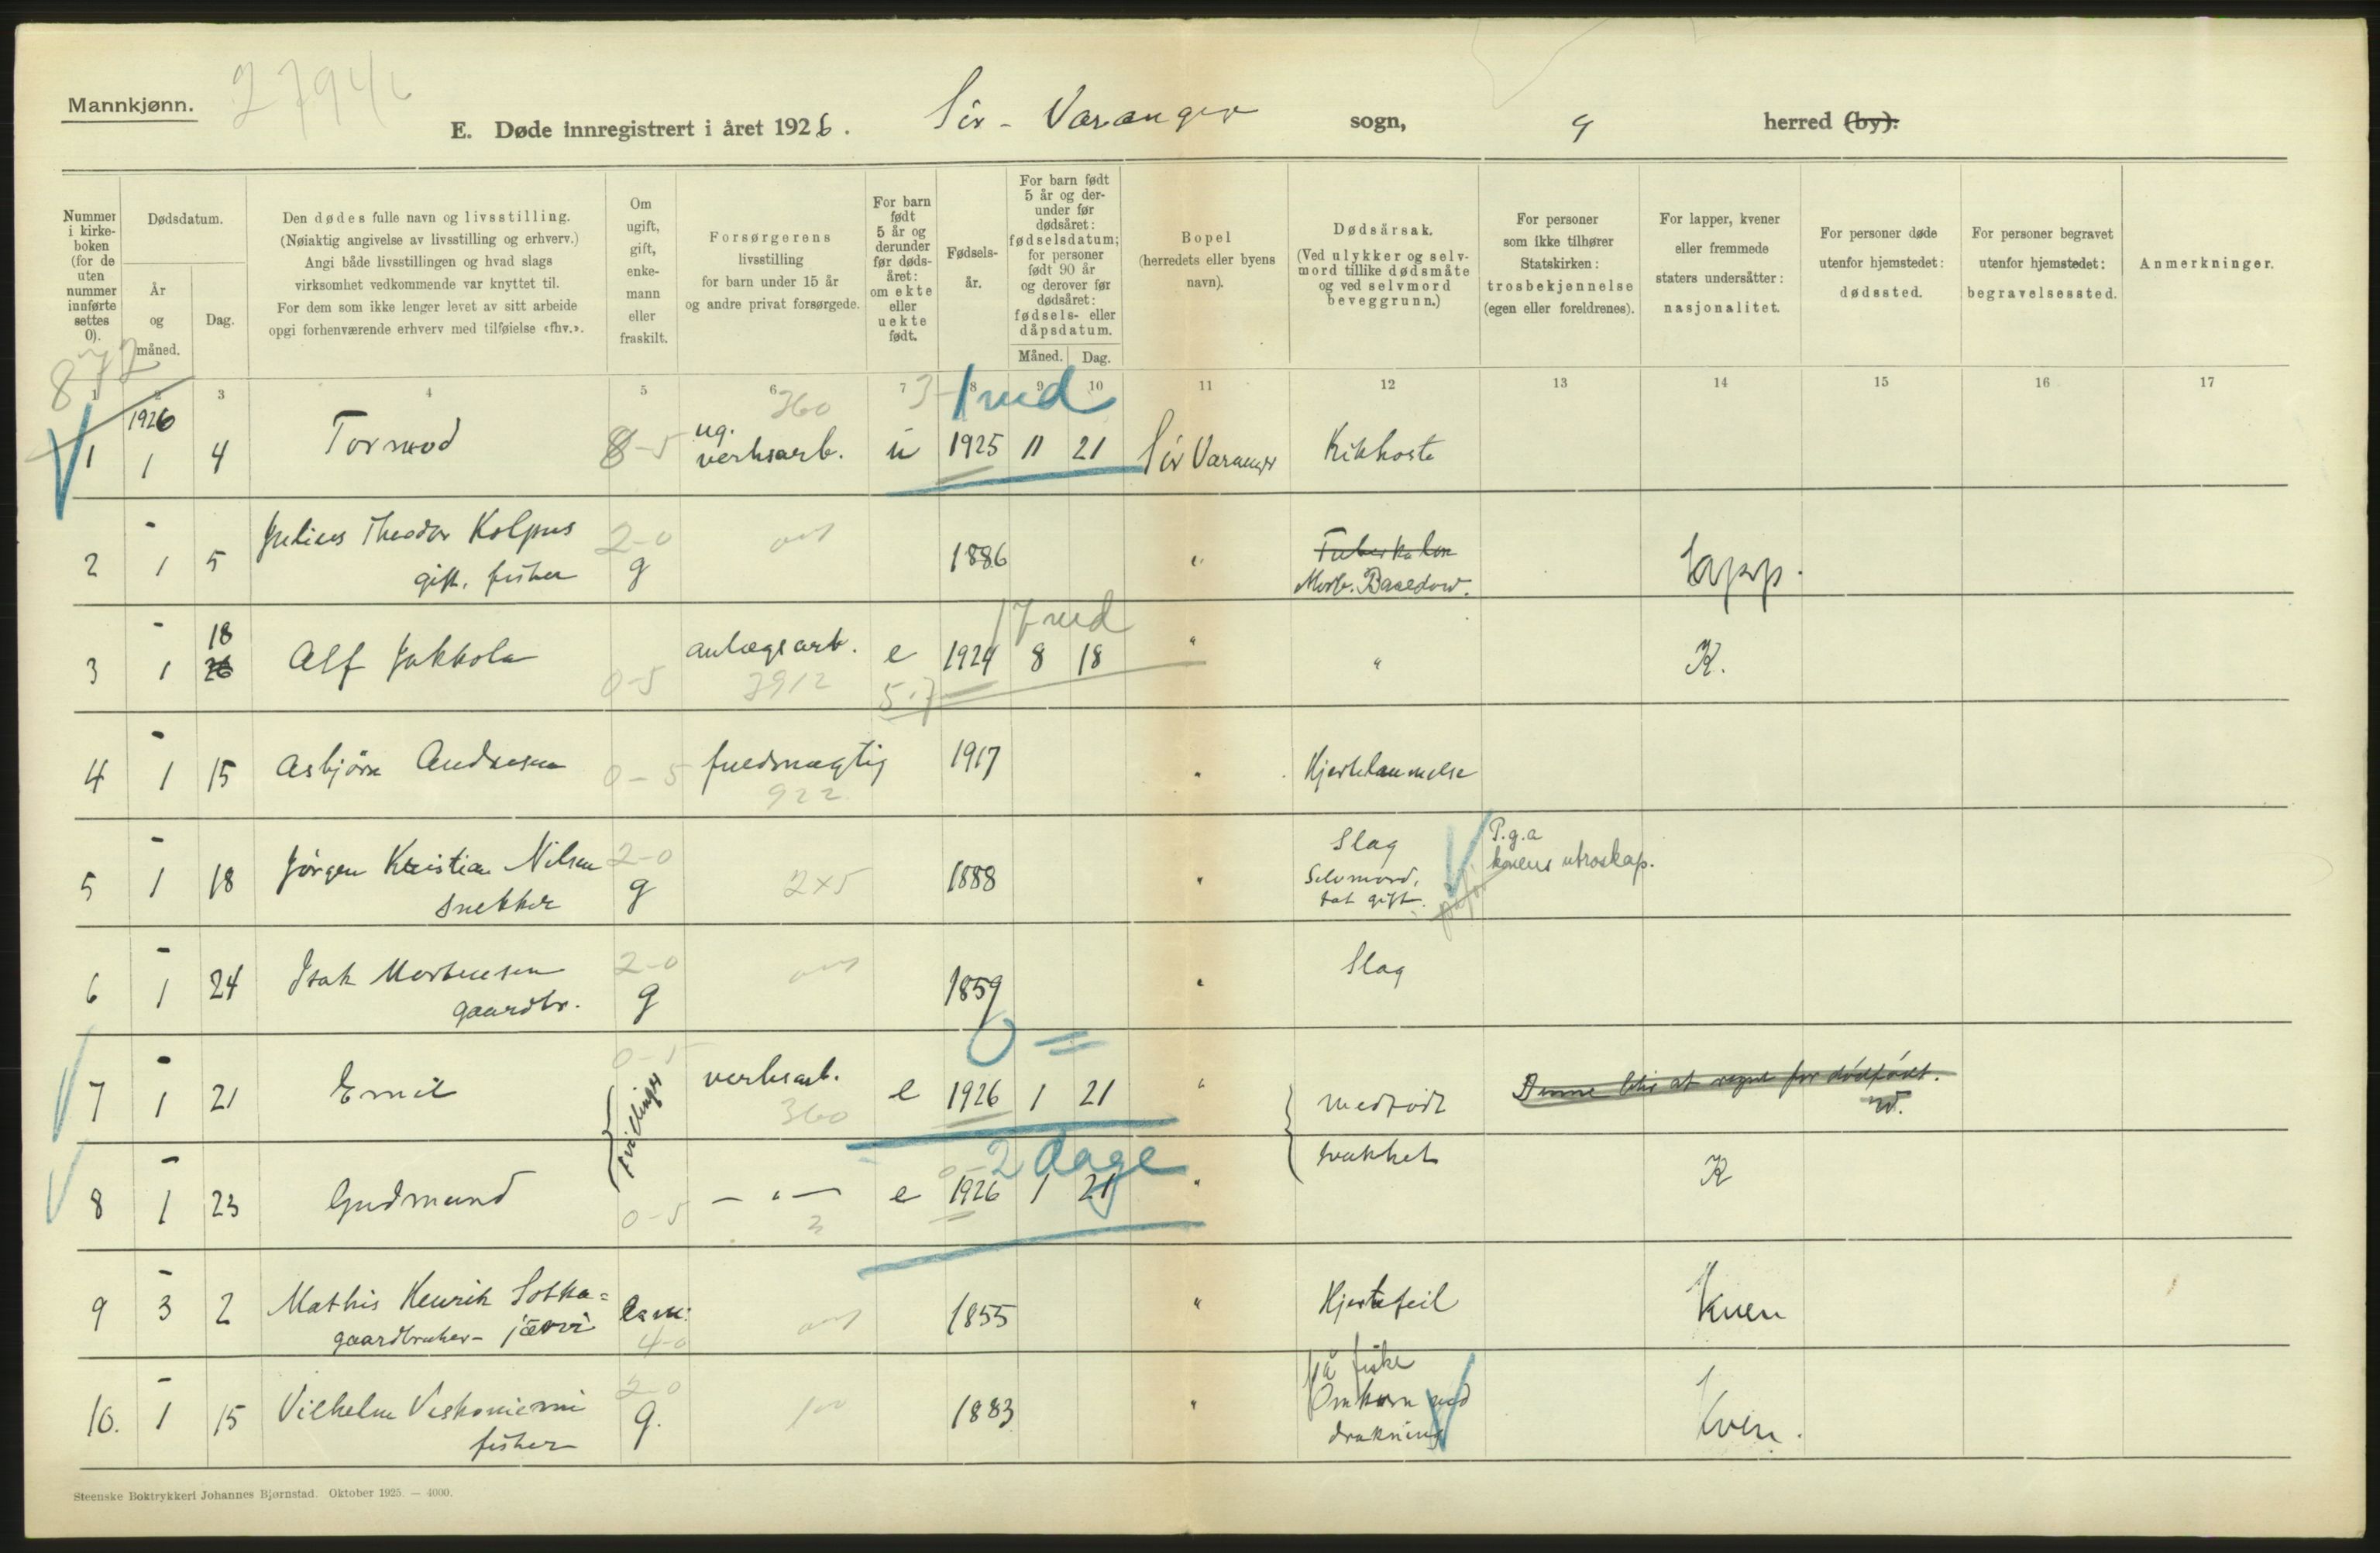 Mannkjønn.
27946
E. Døde innregistrert i året 1926. Sör-Varanger sogn, herred (by).
Nummer i kirkeboken (for de uten nummer innførte settes 0).
Dødsdatum.
År og måned.
Dag.
Den dødes fulle navn og livsstilling.
(Nøiaktig angivelse av livsstilling og erhverv.)
Angi både livsstillingen og hvad slags
virksomhet vedkommende var knyttet til.
For dem som ikke lenger levet av sitt arbeide
opgi forhenværende erhverv med tilføielse «fhv.».
Om ugift, gift, enkemann eller fraskilt.
Forsørgerens
livsstilling
for barn under 15 år
og andre privat forsørgede.
For barn født 5 år og derunder før dødsåret: om ekte eller uekte født.
Fødselsår.
For barn født 5 år og derunder før dødsåret: fødselsdatum; for personer født 90 år og derover før dødsåret: fødsels- eller dåpsdatum.
Måned. Dag.
Bopel
(herredets eller byens
navn).
Dødsårsak.
(Ved ulykker og selvmord tillike dødsmåte og ved selvmord beveggrunn.)
For personer
som ikke tilhører
Statskirken:
trosbekjennelse
(egen eller foreldrenes).
For lapper, kvener
eller fremmede
staters undersåtter:
nasjonalitet.
For personer døde
utenfor hjemstedet:
dødssted.
For personer begravet
utenfor hjemstedet:
begravelsessted.
Anmerkninger.
872
1 2 3 4 5 6 7 8 9 10 11 12 13 14 15 16 17
360 3 1 md
1926
1 1 4 Tormod 8-5 ug. verksarb. u 1925 11 21 Sör Varanger Kikhoste
2 - 1 5 Julius Theodor Kolpus 2-0 1886 " Tuberkulose
gift. fisker g Morb. Basedow. Lapp.
17 md
3 - 1 18 26 Alf Jakkola 0-5 anlægsarb. e 1924 8 18 " " K.
3912 5.7
4 - 1 15 Asbjörn Andresen 0-5 fuldmægtig 1917 " Hjertelammelse
922
5 - 1 18 Jörgen Kristian Nilsen 2-0 2x5 1888 " Slag P.g.a
snekker g Selvmord, tat gift. konens utroskap.
6 - 1 24 Isak Mortensen 2-0 1859 " Slag
gaardbr. g
0
7 - 1 21 Emil 0-5 tvillinger verksarb. e 1926 1 21 " medfödt
360
Denne blir at regne for dödfödt.
2 dage
8 - 1 23 Gudmund 0-5 - " - e 1926 1 21 " svakhet K
3
9 - 3 2 Mathis Henrik Sotka= e.m. 1855 " Hjertefeil Kven
gaardbruker- järvi 4-0
10. - 1 15 Vilhelm Veskoniemi 2-0 1883 " På fiske
fisker g. Omkom ved
drukning Kven.
Steenske Boktrykkeri Johannes Bjørnstad. Oktober 1925. — 4000.